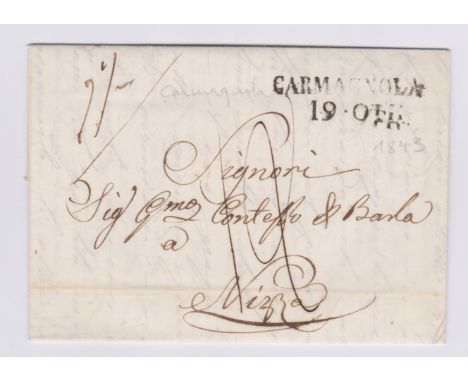 Carmagnola
CARMAGNOLA
19 · OTT.
1843
Signori
Sig.ri Contesso & Barla
a
Nizza